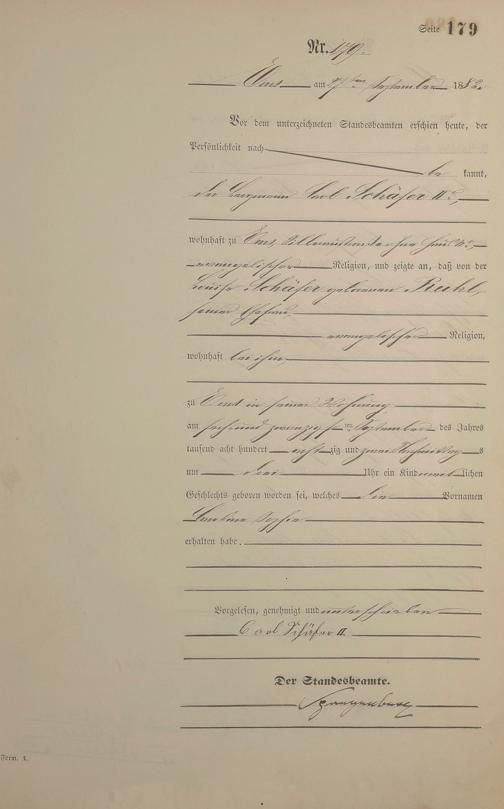 Seite 179
Nr. 179.
Ems am 27ten September 1882
Vor dem unterzeichneten Standesbeamten erschien heute, der
Persönlichkeit nach
be kannt,
der Bergmann Carl Schäfer II.,
wohnhaft zu Ems,
evangelischer Religion, und zeigte an, daß von der
Louise Schäfer geborenen Ruhl,
seiner Ehefrau,
evangelischer Religion,
wohnhaft bei ihm,
zu Ems in seiner Wohnung
am sechsundzwanzigsten September des Jahres
tausend acht hundert achtzig und zwei Nachmittags
um drei Uhr ein Kind weiblichen
Geschlechts geboren worden sei, welches die Vornamen
Sophie
erhalten habe.
Vorgelesen, genehmigt und unterschrieben
Carl Schäfer II.
Der Standesbeamte.
Spangenberg
Form. A.